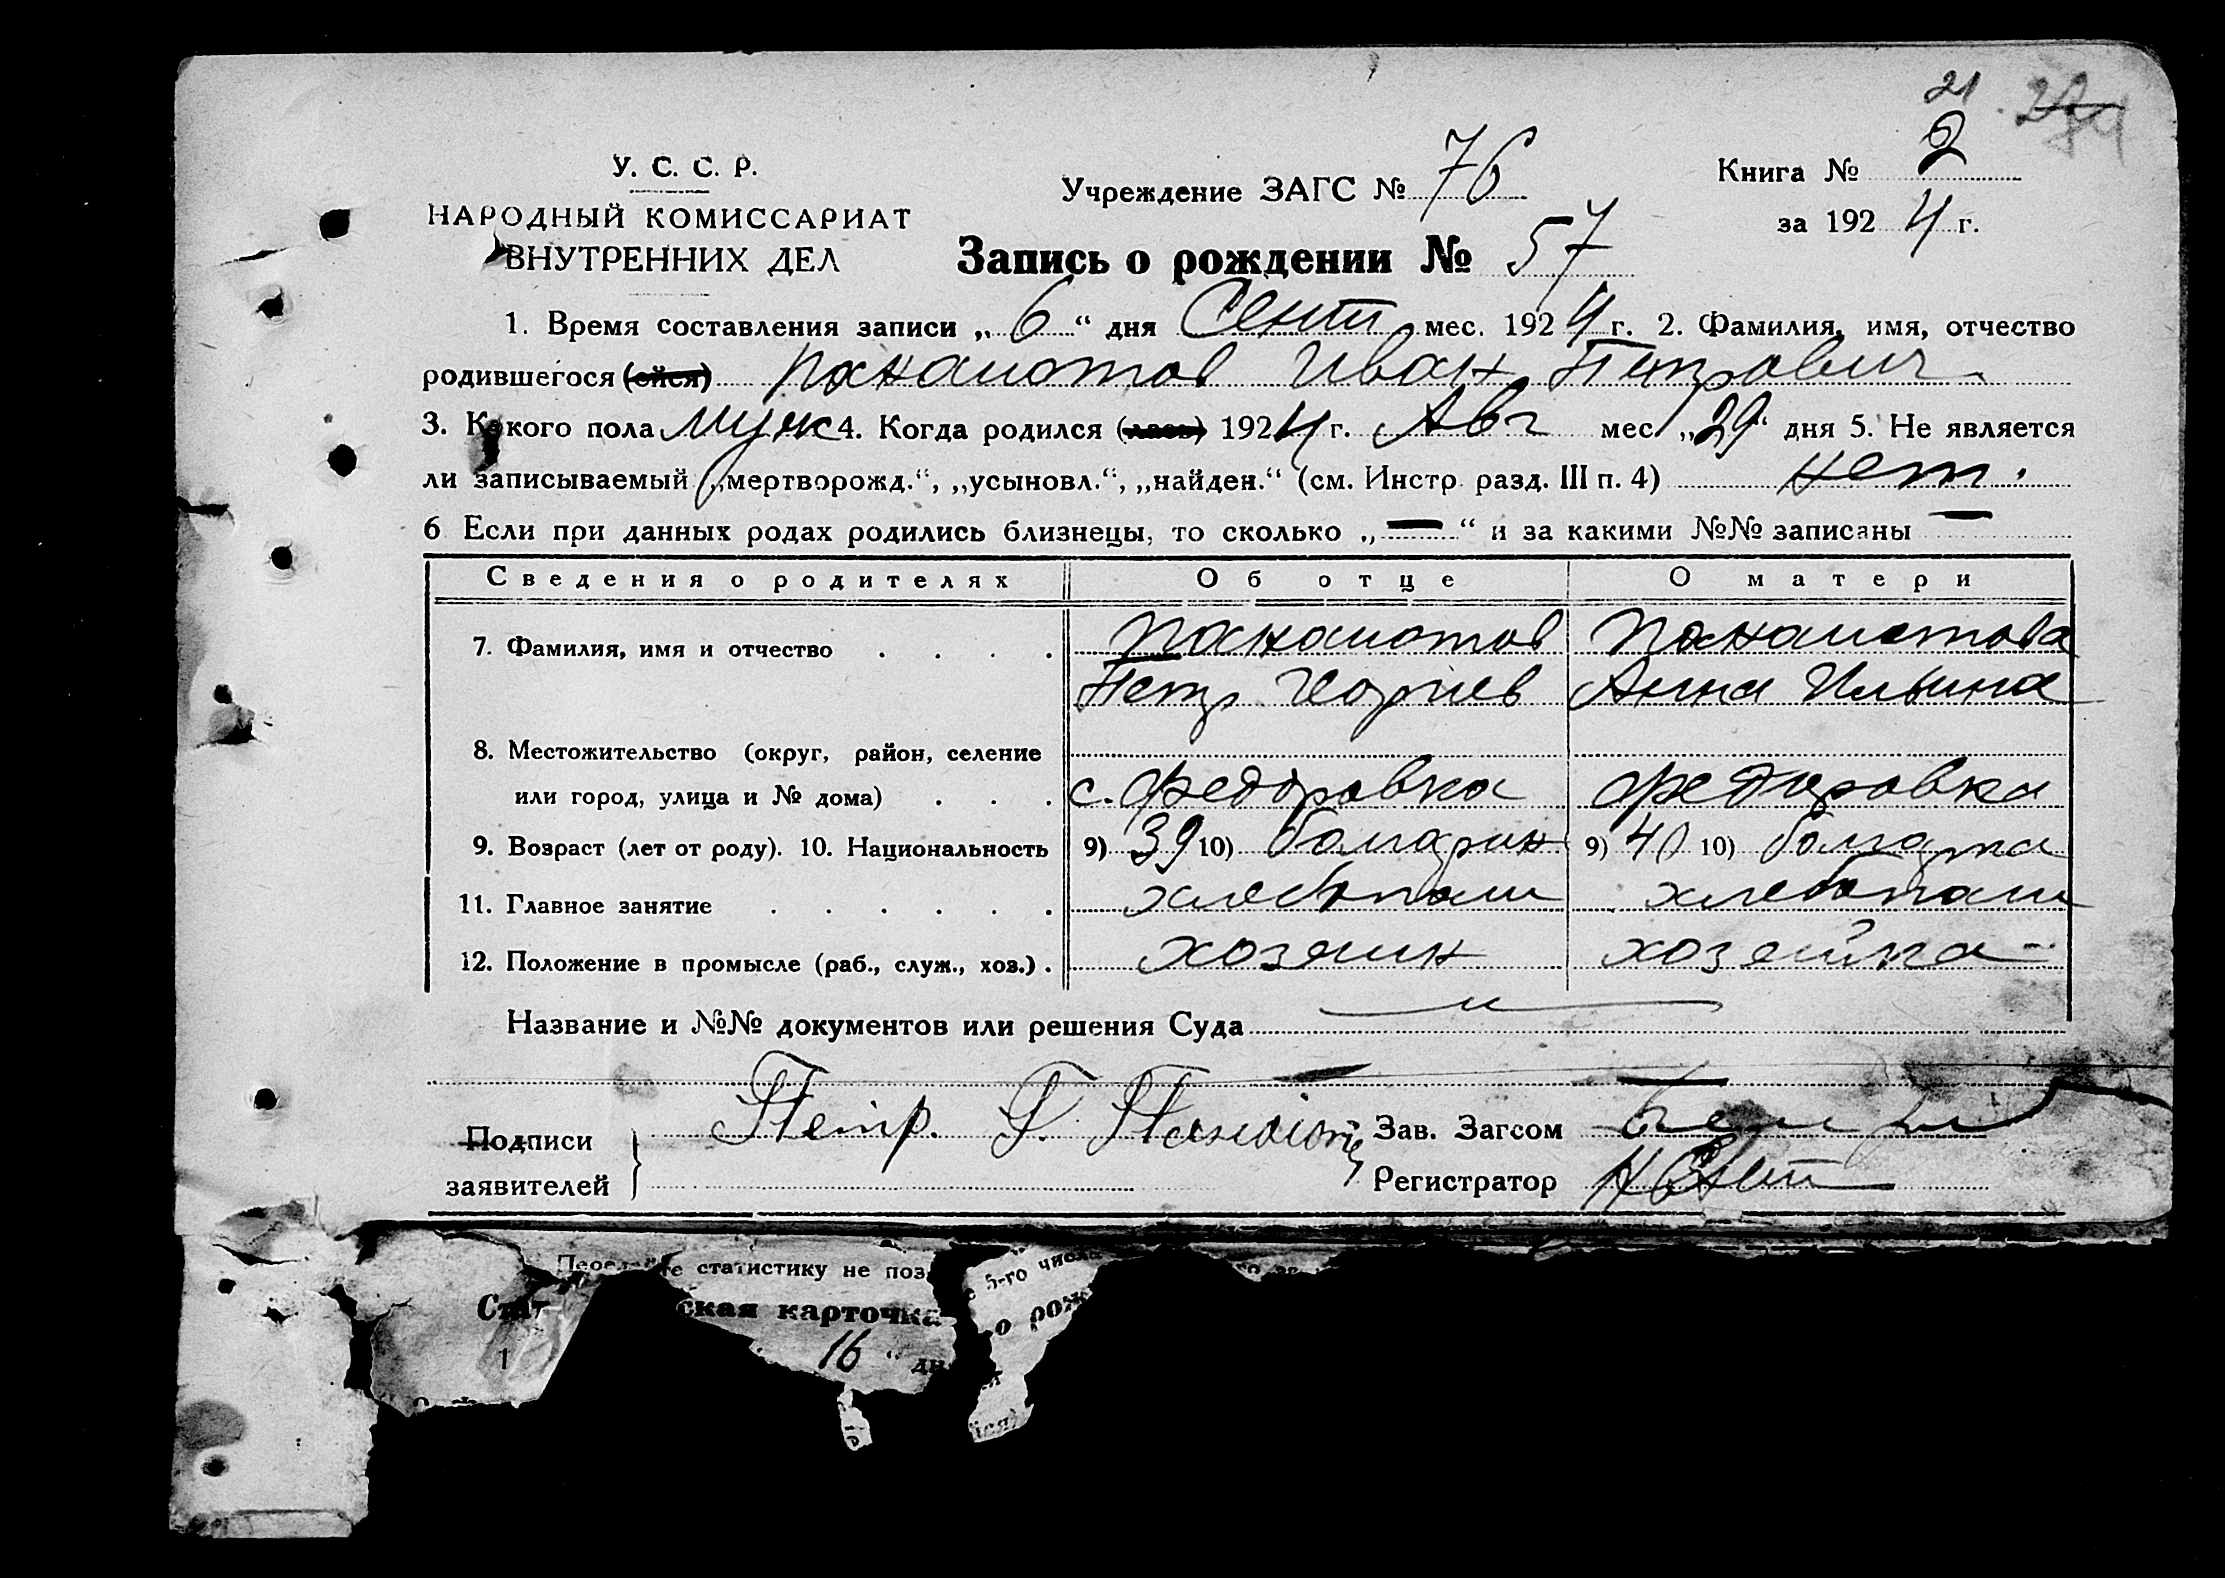 21
У. С. С. Р.
НАРОДНЫЙ КОМИССАРИАТ
ВНУТРЕННИХ ДЕЛ
Учреждение ЗАГС № 76
Книга № 2
за 1924 г.
Запись о рождении № 57
1. Время составления записи „6“ дня Сент мес. 1924 г. 2. Фамилия, имя, отчество
родившегося (ейся) Панаиотов Иван Петрович
3. Какого пола муж 4. Когда родился (лась) 1924 г. Авг мес. „29“ дня 5. Не является
ли записываемый „мертворожд.“, „усыновл.“, „найден.“ (см. Инстр. разд. III п. 4) нет.
6 Если при данных родах родились близнецы, то сколько „—“ и за какими №№ записаны —
Сведения о родителях Об отце О матери
7. Фамилия, имя и отчество . . . . Панаиотов Панаиотова
Петр Георгиев Анна Ильина
8. Местожительство (округ, район, селение
или город, улица и № дома) . . . с. Федоровка Федоровка
9. Возраст (лет от роду). 10. Национальность 9) 39 10) болгарин 9) 40 10) болгарка
11. Главное занятие . . . . . . хлебопаш хлебопаш
12. Положение в промысле (раб., служ., хоз.) . хозяин хозяйка
Название и №№ документов или решения Суда
Подписи Петр. Г. Панаіотов Зав. Загсом
заявителей Регистратор
статистику не поз 5-го числа
Стат ская карточка о рож
1 16 “ дн